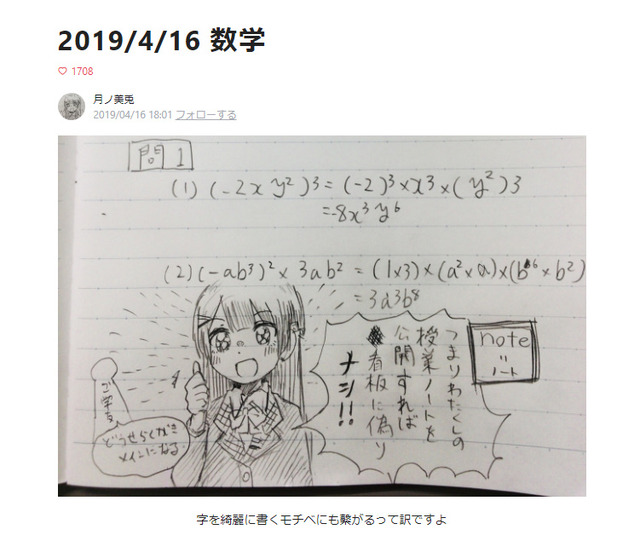 2019/4/16 数学
♡ 1708
月ノ美兎
2019/04/16 18:01 フォローする
問1
(1) (-2xy²)3 = (-2)³×x³×(y²)3
=-8x³y⁶
(2) (-ab³)²×3ab² = (1×3)×(a²×a)×(b⁶×b²)
= 3a³b⁸
note
=
ノート
つまりわたくしの
授業ノートを
公開すれば
看板に偽り
ナシ!!
ご学友
どうせらくがき
メインになる
字を綺麗に書くモチベにも繋がるって訳ですよ